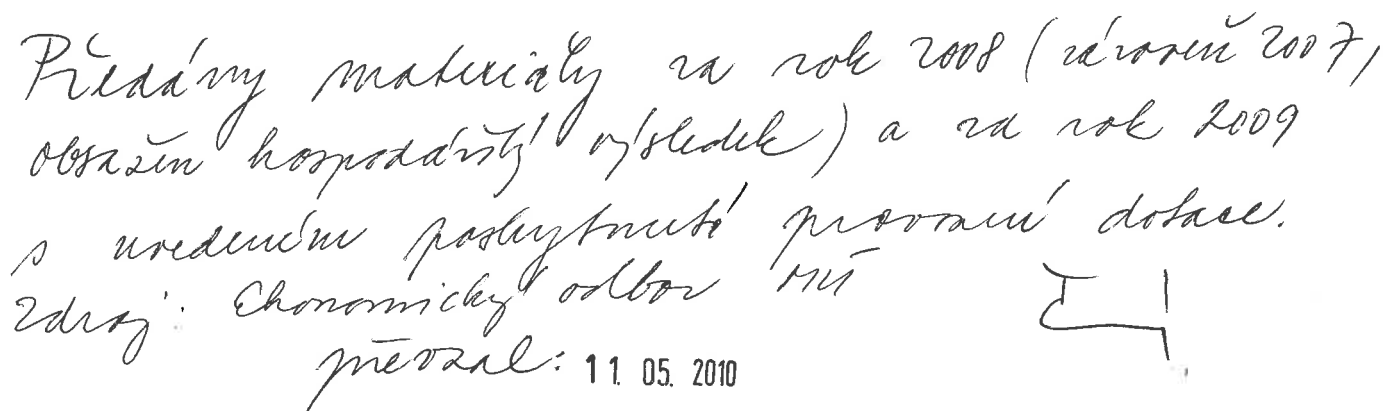 Předány materiály za rok 2008 (zároveň 2007,
obsažen hospodářský výsledek) a za rok 2009
s uvedením poskytnuté provozní dotace.
Zdroj: Ekonomický odbor
převzal: 11. 05. 2010